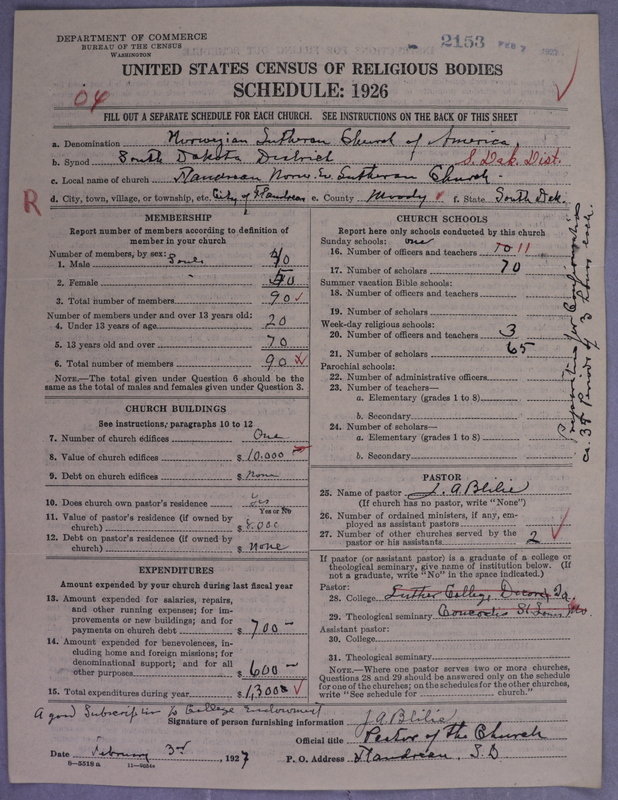 DEPARTMENT OF COMMERCE
BUREAU OF THE CENSUS
WASHINGTON
2153 FEB 7 1927
UNITED STATES CENSUS OF RELIGIOUS BODIES
SCHEDULE: 1926
04
FILL OUT A SEPARATE SCHEDULE FOR EACH CHURCH. SEE INSTRUCTIONS ON THE BACK OF THIS SHEET
a. Denomination Norwegian Lutheran Church of America,
b. Synod South Dakota District S. Dak. Dist.
c. Local name of church Flandreau Norw. Ev. Lutheran Church
R
d. City, town, village, or township, etc. City of Flandreau e. County Moody f. State South Dak.
MEMBERSHIP
Report number of members according to definition of member in your church
Number of members, by sex: Souls
1. Male 40
2. Female 50
3. Total number of members 90
Number of members under and over 13 years old:
4. Under 13 years of age 20
5. 13 years old and over 70
6. Total number of members 90
NOTE.—The total given under Question 6 should be the same as the total of males and females given under Question 3.
CHURCH BUILDINGS
See instructions, paragraphs 10 to 12
7. Number of church edifices One
8. Value of church edifices $ 10.000
9. Debt on church edifices $ None
10. Does church own pastor's residence Yes
Yes or No
11. Value of pastor's residence (if owned by church) $ 5.000
12. Debt on pastor's residence (if owned by church) $ None
EXPENDITURES
Amount expended by your church during last fiscal year
13. Amount expended for salaries, repairs, and other running expenses; for improvements or new buildings; and for payments on church debt $ 700 –
14. Amount expended for benevolences, including home and foreign missions; for denominational support; and for all other purposes $ 600 –
15. Total expenditures during year $ 1,300
CHURCH SCHOOLS
Report here only schools conducted by this church
Sunday schools: one
16. Number of officers and teachers 10 11
17. Number of scholars 70
Summer vacation Bible schools:
18. Number of officers and teachers
19. Number of scholars
Week-day religious schools:
20. Number of officers and teachers 3
21. Number of scholars 65
Parochial schools:
22. Number of administrative officers
23. Number of teachers—
a. Elementary (grades 1 to 8)
b. Secondary
24. Number of scholars—
a. Elementary (grades 1 to 8)
b. Secondary
Preparation for Confirmation
ca. 35 Periods of 3 hours each.
PASTOR
25. Name of pastor J. A Blilie
(If church has no pastor, write "None")
26. Number of ordained ministers, if any, employed as assistant pastors
27. Number of other churches served by the pastor or his assistants 2
If pastor (or assistant pastor) is a graduate of a college or theological seminary, give name of institution below. (If not a graduate, write "No" in the space indicated.)
Pastor:
28. College Luther College, Decorah Ia.
29. Theological seminary Concordia St Louis, Mo.
Assistant pastor:
30. College
31. Theological seminary
NOTE.—Where one pastor serves two or more churches, Questions 28 and 29 should be answered only on the schedule for one of the churches; on the schedules for the other churches, write "See schedule for church."
A good Subscription to College Endowment
Signature of person furnishing information J A Blilie
Official title Pastor of the Church
Date February 3rd, 1927 P. O. Address Flandreau, S.D
8—5518 a 11—9054a